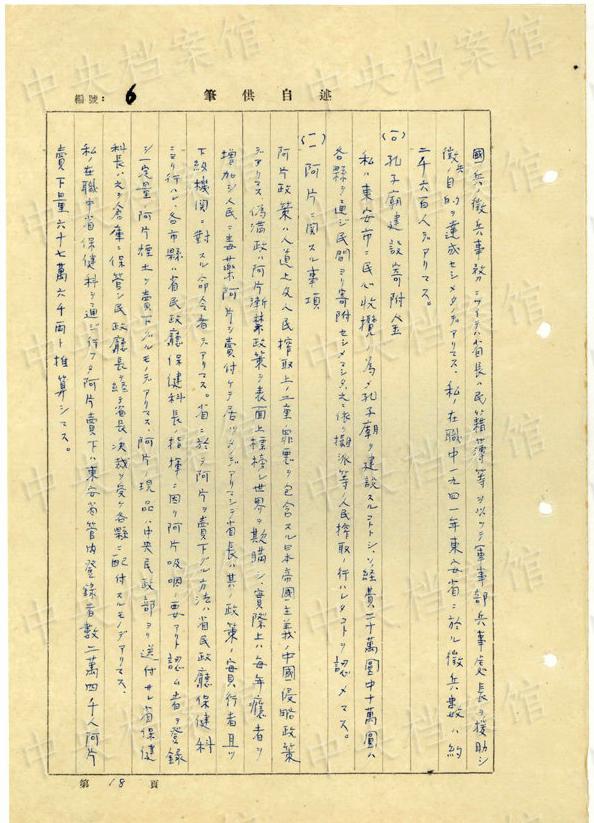 編號: 6
筆供自述
國兵ノ徴兵事務ニツイテハ省長ハ民籍簿等ヲ以ッテ軍事部兵事處長ヲ援助シ
徴兵ノ目的ヲ達成セシメタノデアリマス、私ノ在職中一九四一年東安省ニ於ル徴兵数ハ約
二千六百人デアリマス。
(六) 孔子廟建設寄附金
私ハ東安市ニ民心收攬ノ為メ孔子廟ヲ建設スルコトトシ、ソノ経費二十萬圓中十萬圓ハ
各縣ヲ通ジ民間ヨリ寄附セシメマシタ、之ニ依リ攤派等ノ人民搾取ノ行ハレタコトヲ認メマス。
(二) 阿片ニ関スル事項
阿片政策ハ人道上及人民搾取上ノ二重罪悪ヲ包含スル日本帝國主義ノ中國侵略政策
デアリマス 偽満政ハ阿片漸禁政策ヲ表面上標榜シ世界ヲ欺瞞シ、實際上ハ毎年癮者ヲ
増加シ人民ニ毒薬阿片ヲ賣付ケテ居ッタノデアリマシテ省長ハ其ノ政策ノ實行者且ツ
下級機関ニ対スル命令者デアリマス。省ニ於テ阿片ヲ賣下ゲル方法ハ省民政廳保健科
ニヨリ行ハレ、各市縣ハ省民政廳保健科長ノ指揮ニ因リ阿片吸咽ノ要アリト認ム者ヲ登録
シ一定量ノ阿片煙土ヲ賣下ゲルモノデアリマス、阿片ノ現品ハ中央民政部ヨリ送付サレ省保健
科長ハ之ヲ倉庫ニ保管シ民政廳長ヲ経テ省長ノ決裁ヲ受ケ各縣ニ配付スルモノデアリマス、
私ノ在職中省保健科ヲ通ジ行フタ阿片賣下ハ東安省管内登録者数二萬四千人阿片
賣下量六十七萬六千両ト推算シマス。
第 18 頁
中央档案馆